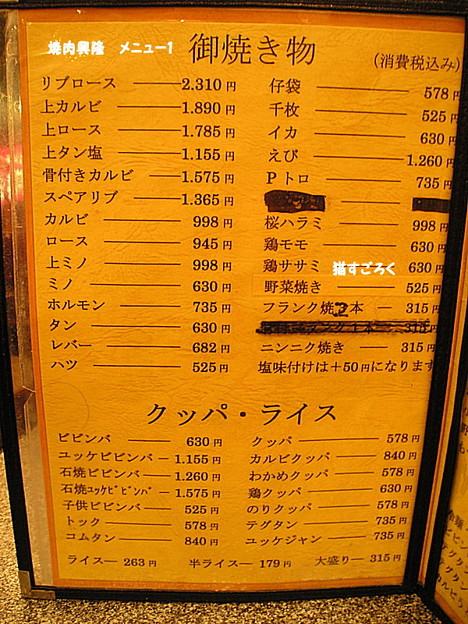 焼肉興隆 メニュー1
御焼き物
(消費税込み)
リブロース 2.310円
上カルビ 1.890円
上ロース 1.785円
上タン塩 1.155円
骨付きカルビ 1.575円
スペアリブ 1.365円
カルビ 998円
ロース 945円
上ミノ 998円
ミノ 630円
ホルモン 735円
タン 630円
レバー 682円
ハツ 525円
仔袋 578円
千枚 525円
イカ 630円
えび 1.260円
Pトロ 735円
桜ハラミ 998円
鶏モモ 630円
鶏ササミ 630円
猫すごろく
野菜焼き 525円
フランク焼2本 315円
ニンニク焼き 315円
塩味付けは+50円になります
クッパ・ライス
ビビンバ 630円
ユッケビビンバ 1.155円
石焼ビビンバ 1.260円
石焼ユッケビビンバ 1.575円
子供ビビンバ 525円
トック 578円
コムタン 840円
クッパ 578円
カルビクッパ 840円
わかめクッパ 578円
鶏クッパ 630円
のりクッパ 578円
テグタン 735円
ユッケジャン 735円
ライス 263円 半ライス 179円 大盛り 315円